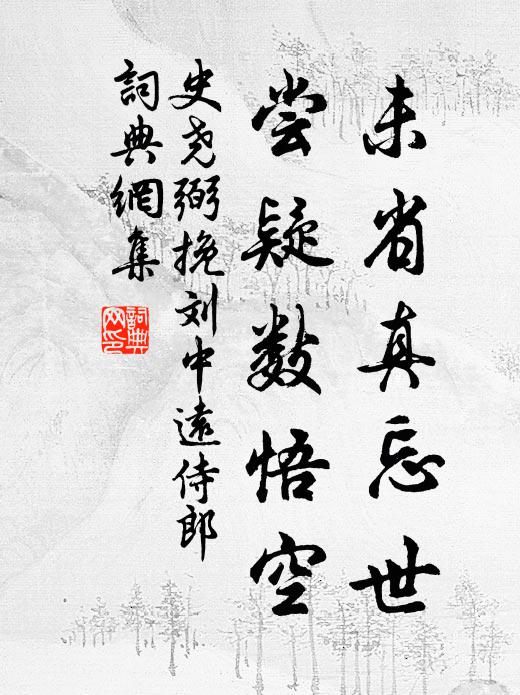 未省真忘世
尝疑数悟空
史尧弼挽刘中遠侍郎
詞典網集
詞典
网印